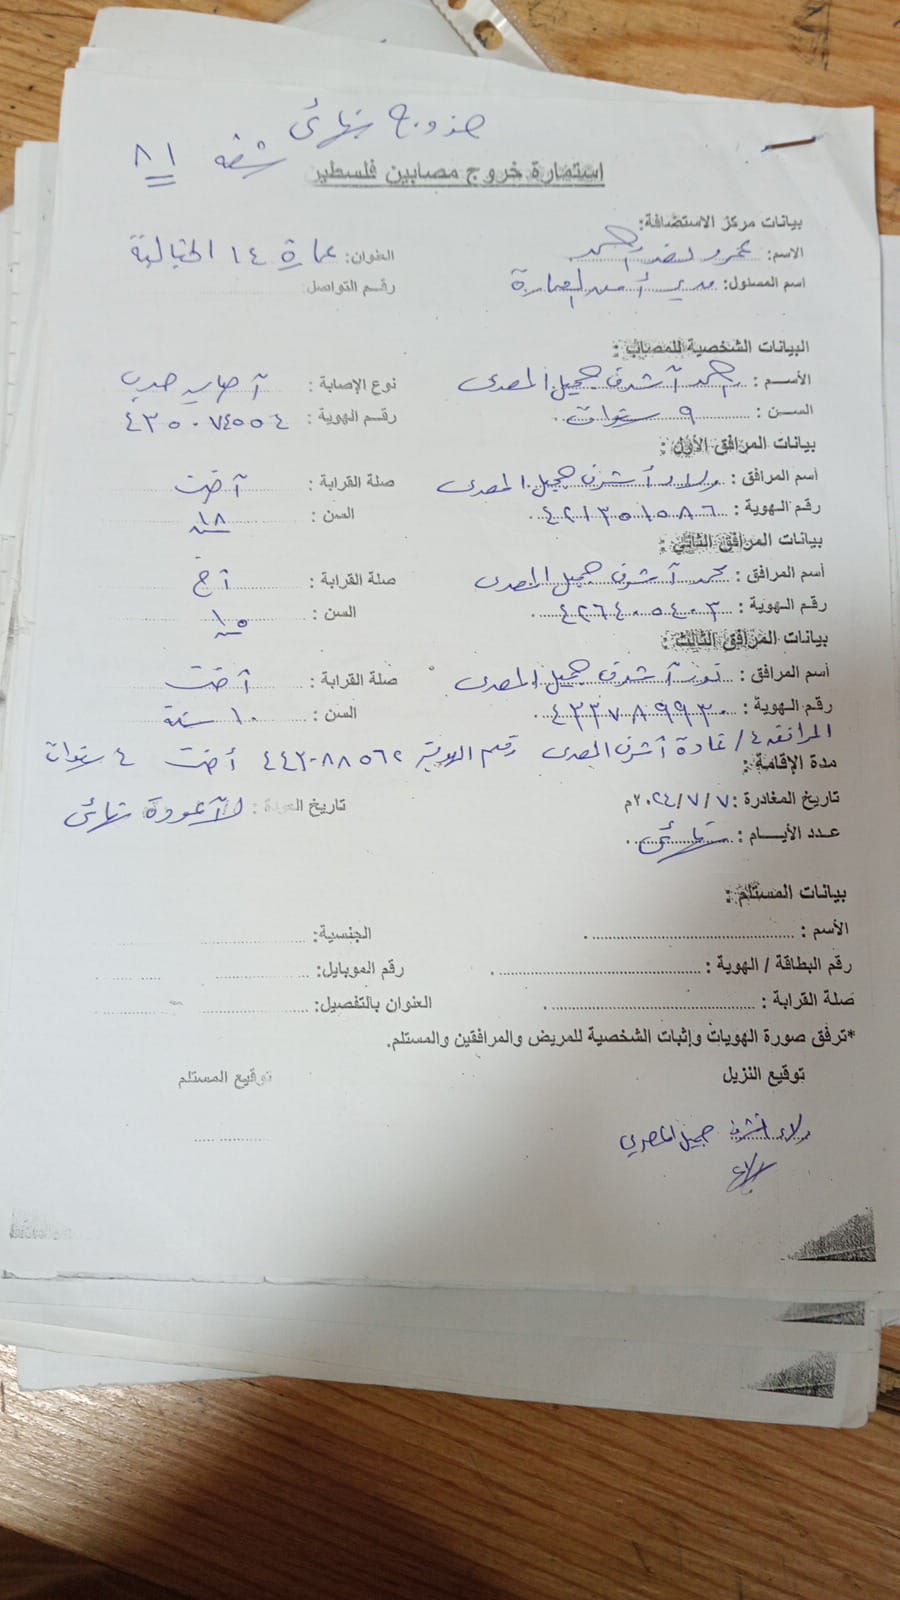 خروج نهائى
شقه ٨١
استمارة خروج مصابين فلسطين
بيانات مركز الاستضافة:
الاسم: العنوان: عمارة ١٤ الخيالة
اسم المسئول: مدير أمن العمارة رقم التواصل:
البيانات الشخصية للمصاب :
الأسم : احمد آشرف جميل المصرى نوع الإصابة : آصابه حرب
السن : ٩ سنوات رقم الهوية : ٤٣٥٠٧٤٥٥٤
بيانات المرافق الأول :
أسم المرافق : ولاء أشرف جميل المصرى صلة القرابة : آخت
رقم الهوية : ٤٢١٣٥١٥٨٦ السن : ١٨
بيانات المرافق الثاني :
أسم المرافق : محمد آشرف جميل المصرى صلة القرابة : آخ
رقم الهوية : ٤٢٦٤٠٥٤٠٣ السن : ١٥
بيانات المرافق الثالث :
أسم المرافق : نور آشرف جميل المصرى صلة القرابة : آخت
رقم الهوية : ٤٣٣٧٨٩٩٣٠ السن : ١٠ سنة
المرافقه ٤ / غادة آشرف المصرى رقم الهوية ٤٤٣٠٨٨٥٦٢ أخت ٤ سنوات
مدة الإقامة :
تاريخ المغادرة : ٢٠٢٤/٧/٧م تاريخ العودة : لآعودة نهائى
عدد الأيام : نهائى
بيانات المستلم :
الأسم : الجنسية:
رقم البطاقة / الهوية : رقم الموبايل:
صلة القرابة : العنوان بالتفصيل:
*ترفق صورة الهويات وإثبات الشخصية للمريض والمرافقين والمستلم.
توقيع النزيل توقيع المستلم
ولاء اشرف جميل المصري
ولاء